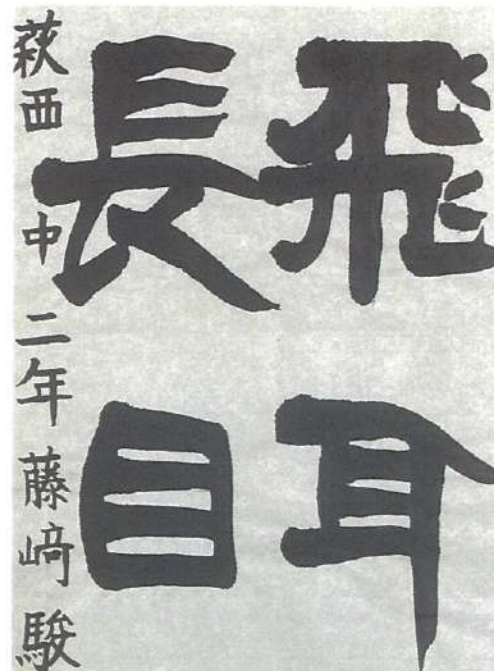 飛耳
長目
萩西中二年藤﨑駿